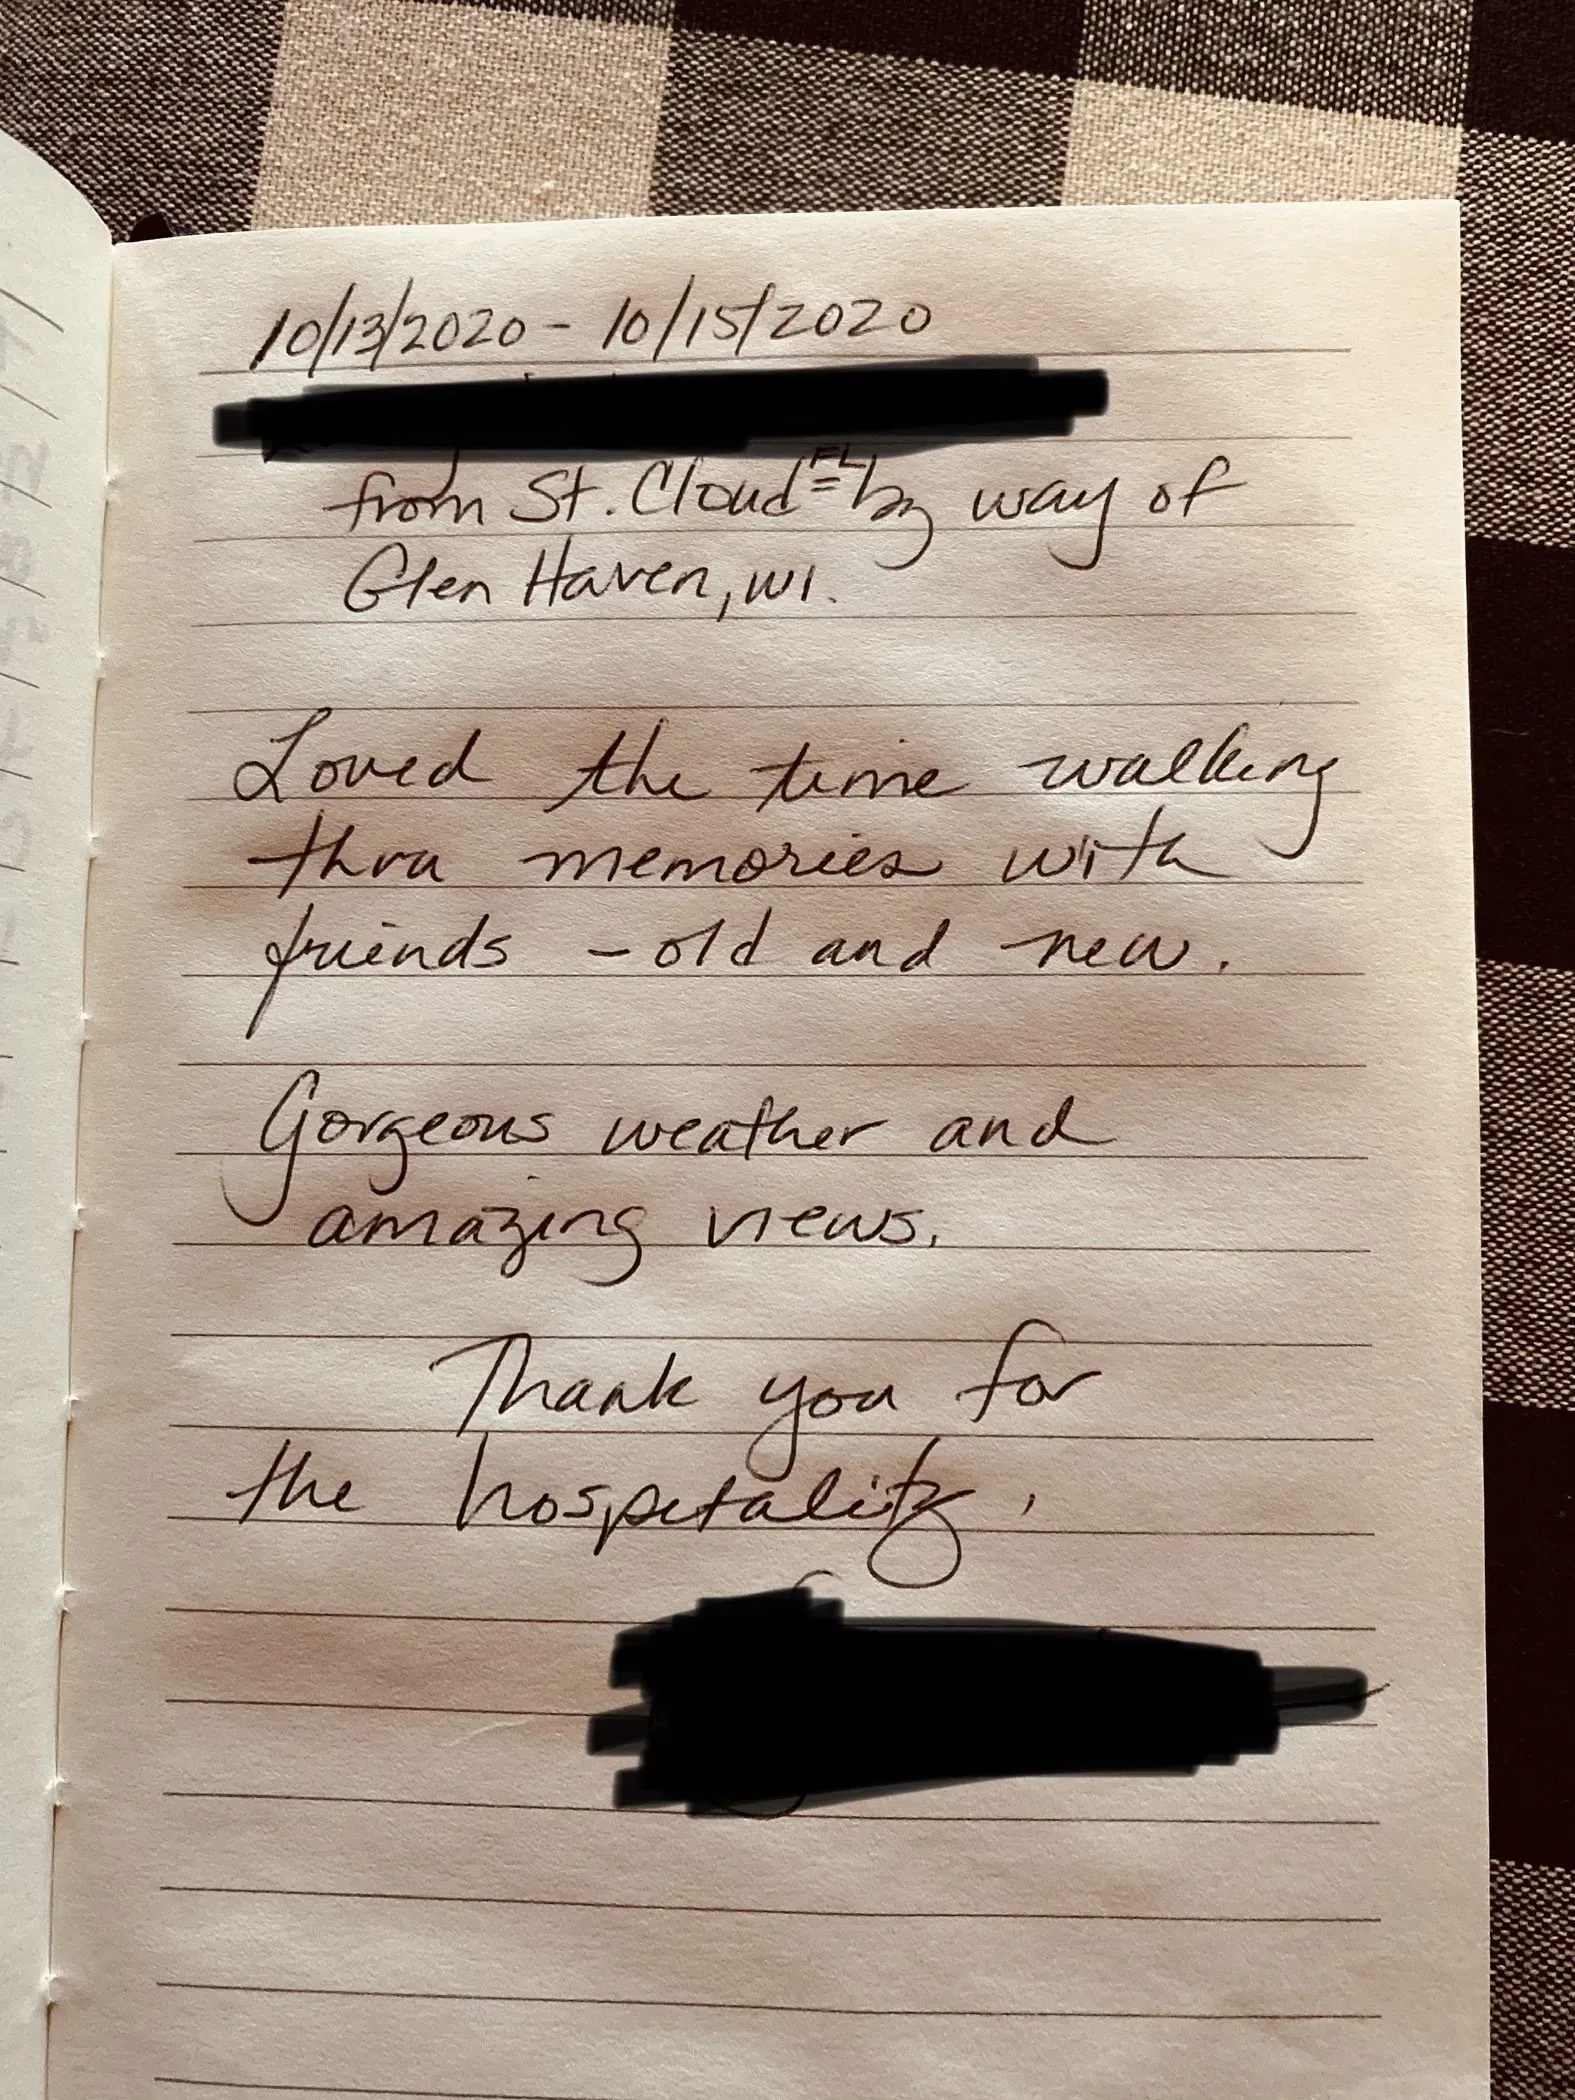 10/13/2020 - 10/15/2020
from St. Cloud FL by way of
Glen Haven, WI.
Loved the time walking
thru memories with
friends - old and new.
Gorgeous weather and
amazing views.
Thank you for
the hospitality.